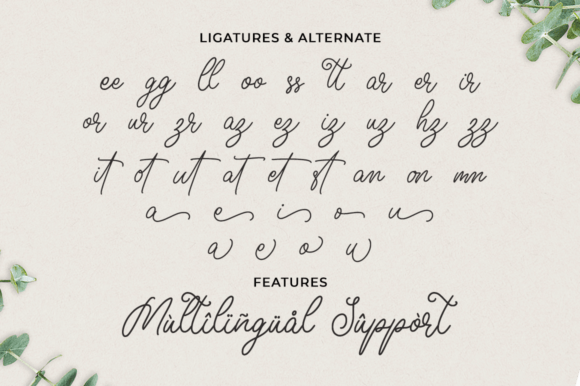 LIGATURES & ALTERNATE
ee gg ll oo ss tt ar er ir
or ur zr az ez iz uz hz zz
it ot ut at et st an on mn
a e i o u
a e o w
FEATURES
Mùltîlïñgüål Sûppòrt